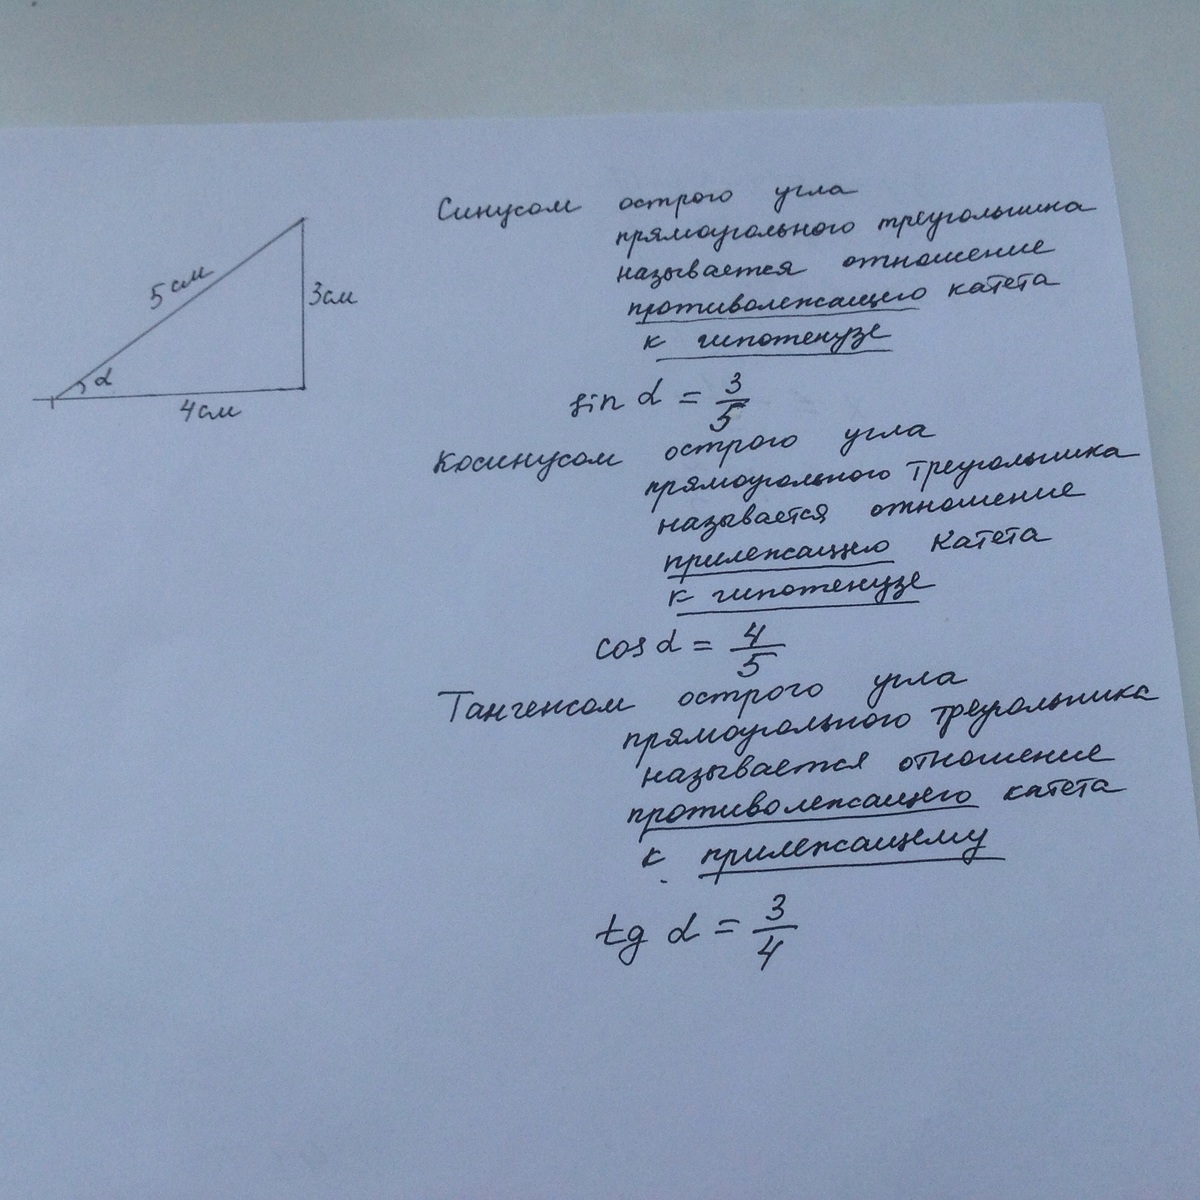 5 см
3 см
α
4 см
Синусом острого угла
прямоугольного треугольника
называется отношение
противолежащего катета
к гипотенузе
sin α = 3/5
Косинусом острого угла
прямоугольного треугольника
называется отношение
прилежащего катета
к гипотенузе
cos α = 4/5
Тангенсом острого угла
прямоугольного треугольника
называется отношение
противолежащего катета
к прилежащему
tg α = 3/4